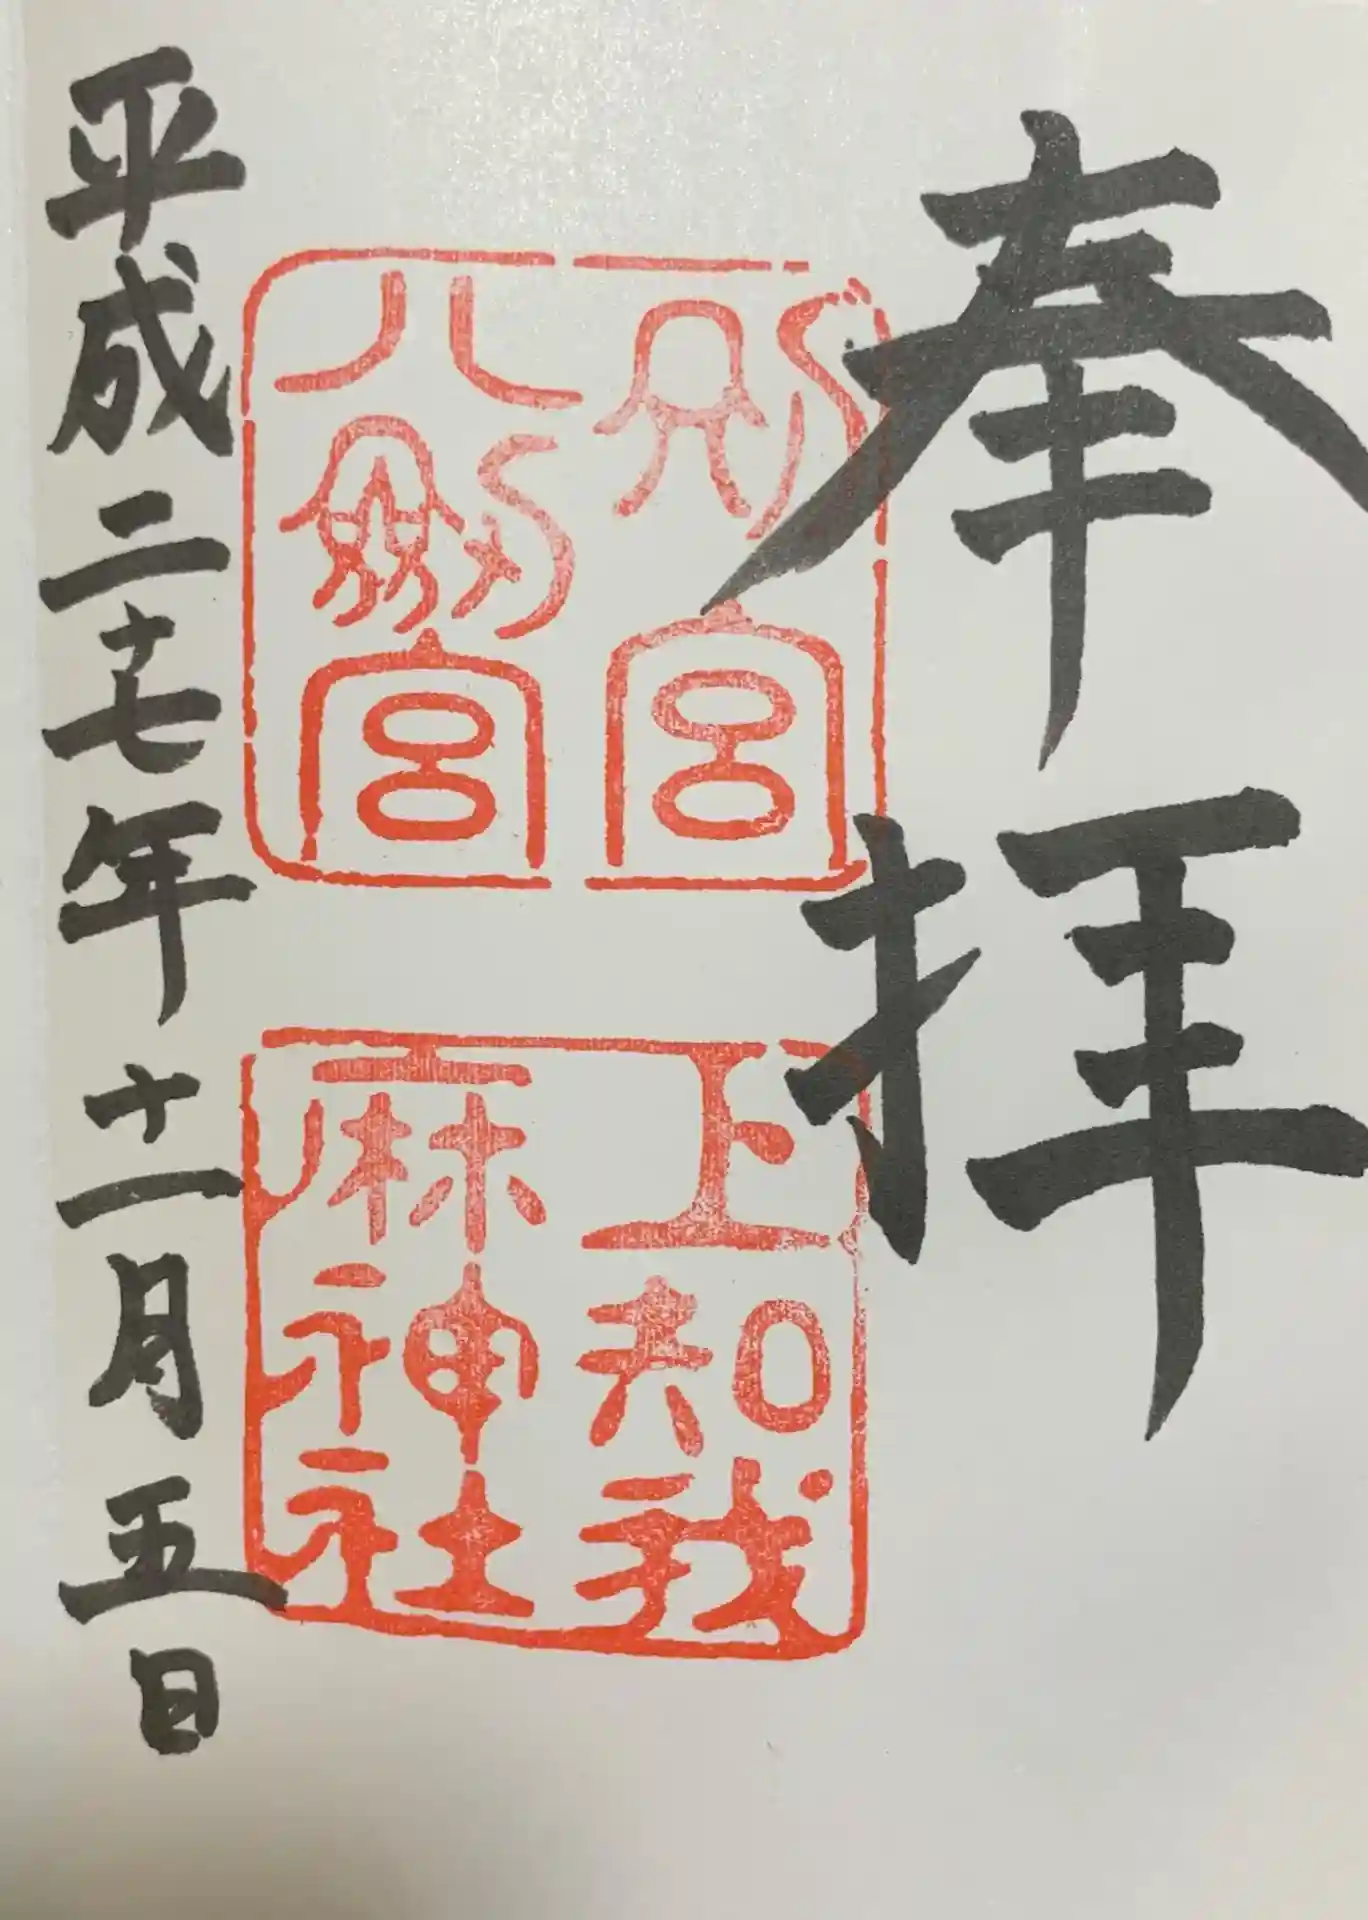 奉拝
別宮
八劔宮
上知我
麻神社
平成二十七年十一月五日